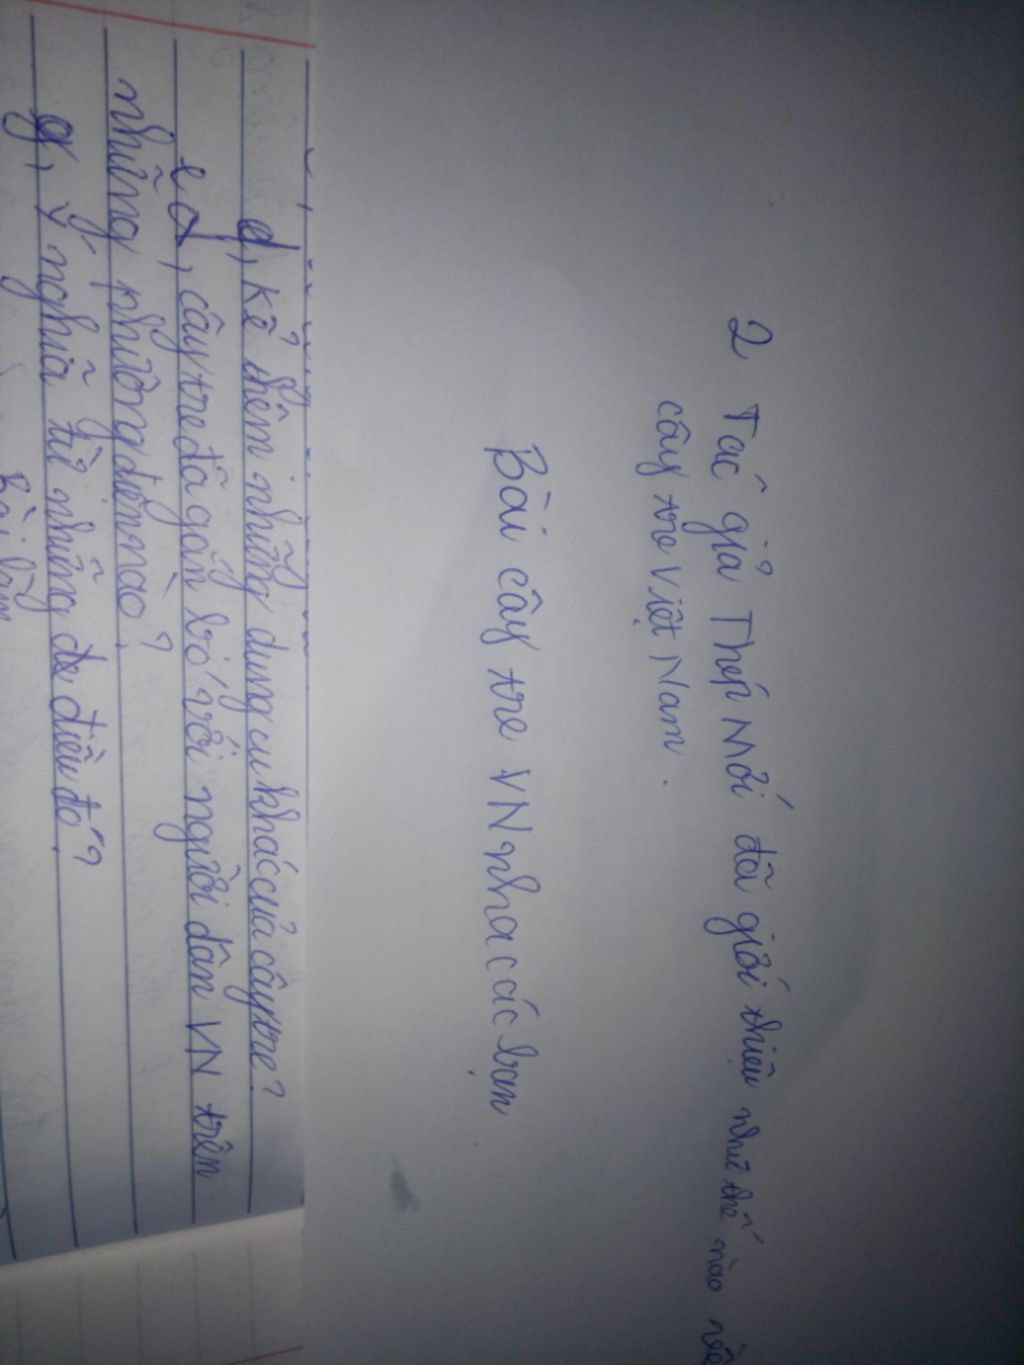 2 Tác giả Thép Mới đã giới thiệu như thế nào về
cây tre Việt Nam.
Bài cây tre VN nha các bạn
d, kể thêm những dụng cụ khác của cây tre?
e, cây tre đã gắn bó với người dân VN trên
những phương diện nào?
g, ý nghĩa từ những điều đó?
Bài làm